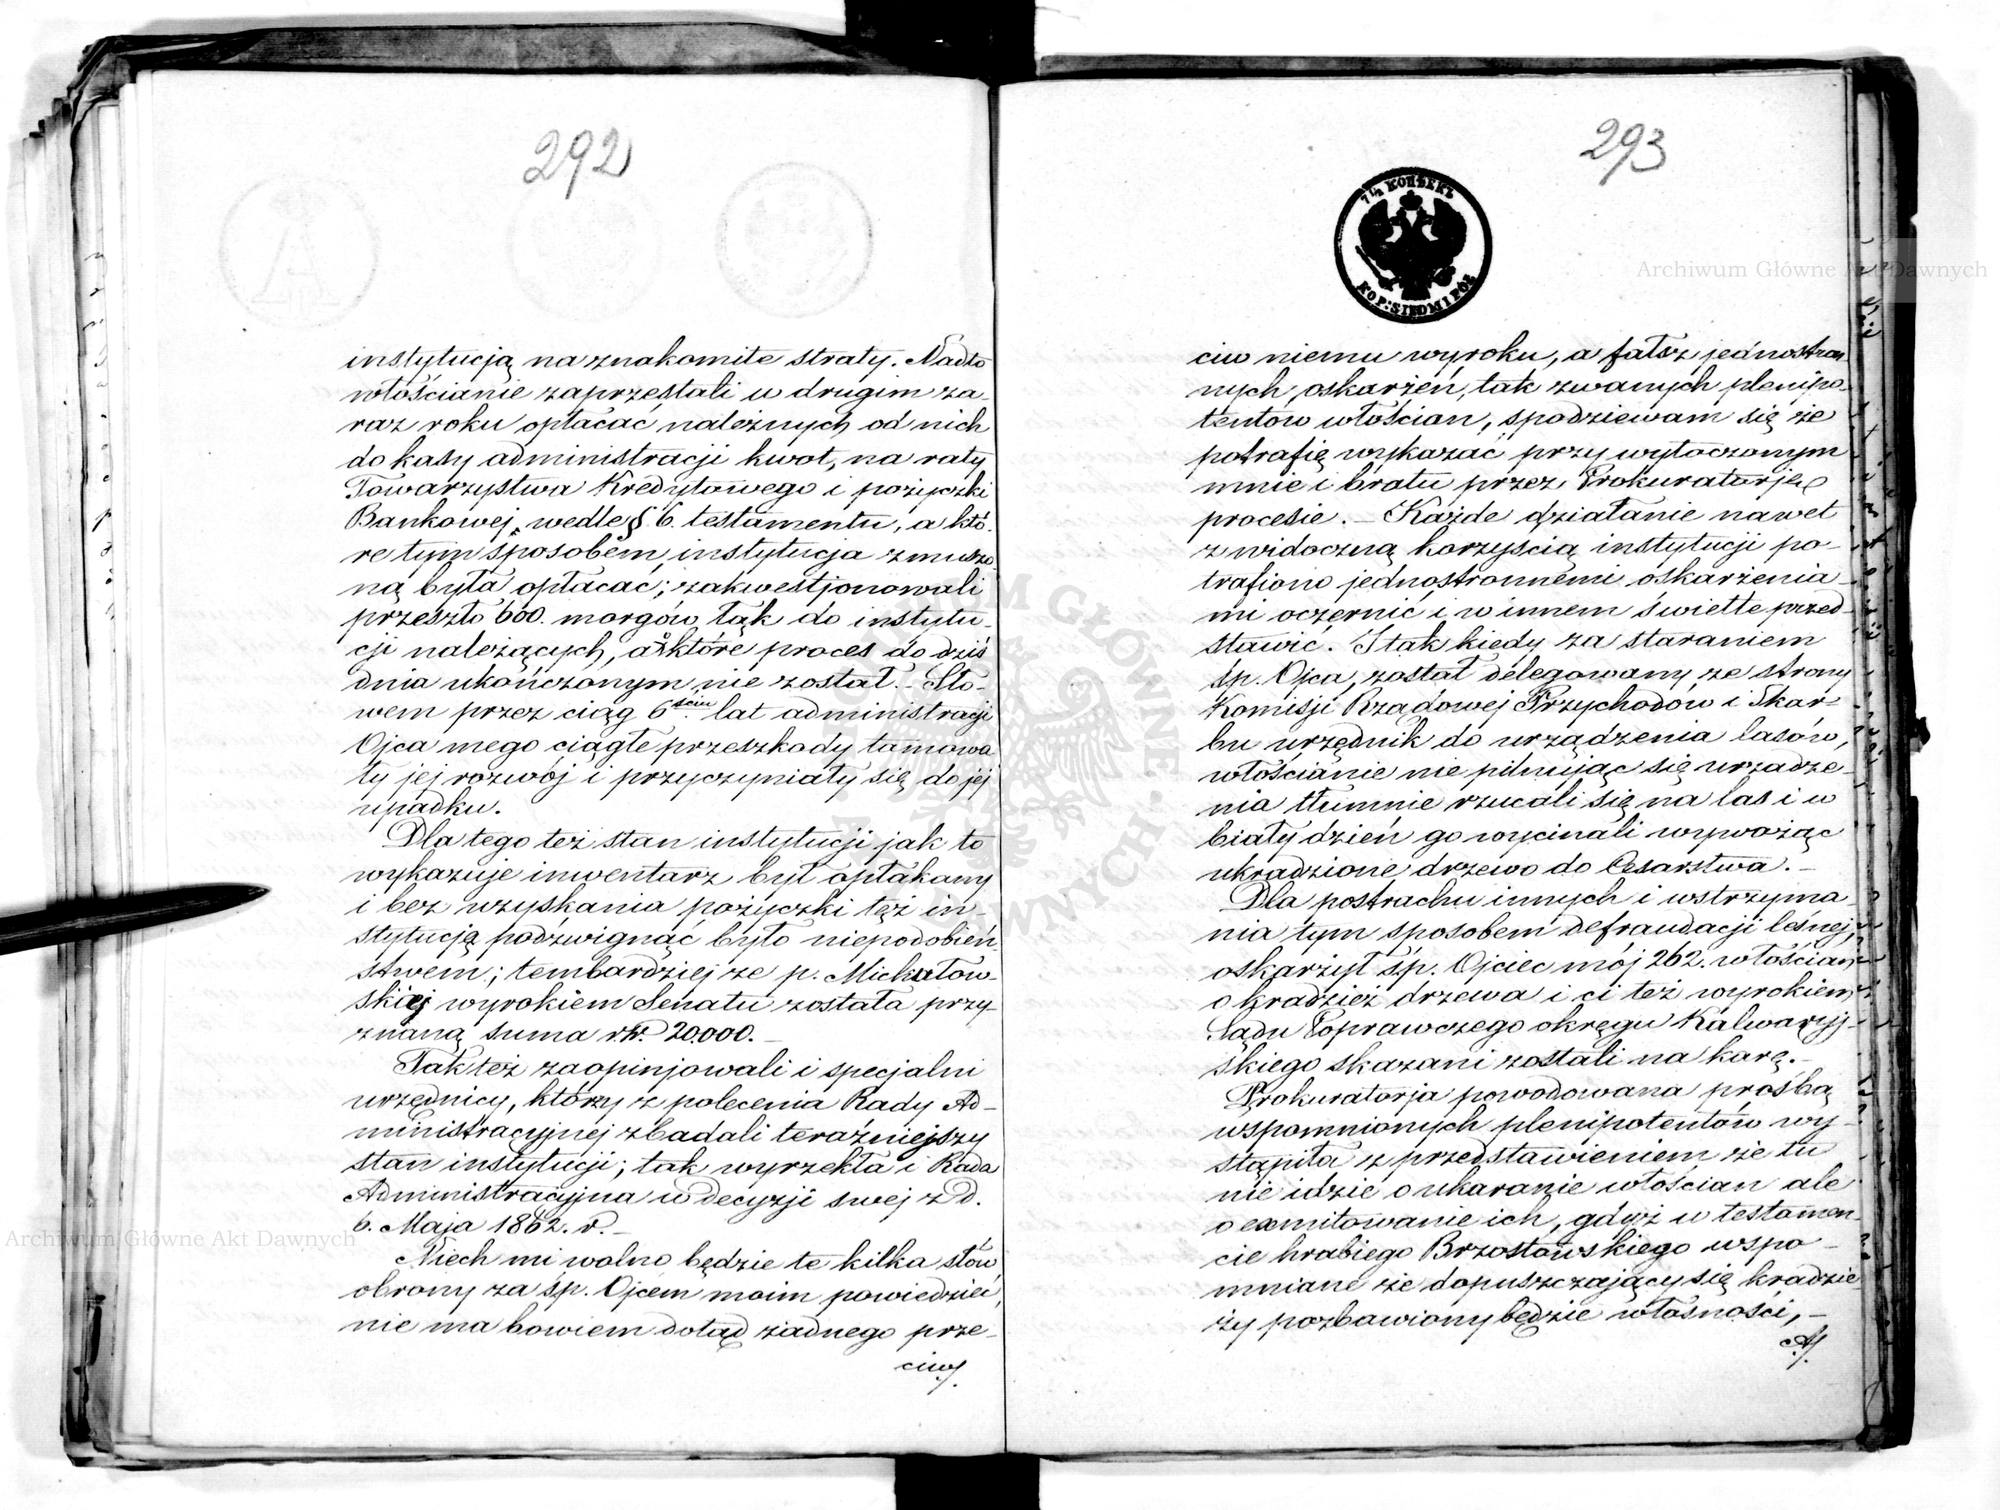 292
instytucją na znakomite straty. Nadto
włościanie zaprzestali w drugim za-
raz roku opłacać należnych od nich
do kasy administracji kwot, na raty
Towarzystwa Kredytowego i pożyczki
Bankowej, wedle § 6. testamentu, a któ-
re tym sposobem, instytucja zmuszo-
ną była opłacać; zakwestjonowali
przeszło 600. morgów, tąk do instytu-
cji należących, a o które proces do dziś
dnia ukończonym nie został. – Sło-
wem przez ciąg 6ściu lat administracji
Ojca mego ciągłe przeszkody tamowa
ły jej rozwój i przyczyniały się do jej
upadku.
Dla tego też stan instytucji jak to
wykazuje inwentarz był opłakany
i bez uzyskania pożyczki też in-
stytucją podźwignąć było niepodobień
stwem; tembardziej że p. Michałow-
skiej wyrokiem Senatu została przy-
znaną suma rs. 20.000. –
Tak też zaopinjowali i specjalni
urzędnicy, którzy z polecenia Rady Ad-
ministracyjnej zbadali teraźniejszy
stan instytucji; tak wyrzekła i Rada
Administracyjna w decyzji swej z d.
6. Maja 1862. r. –
Niech mi wolno będzie te kilka słów
obrony za śp. Ojcem moim powiedzieć,
nie ma bowiem dotąd żadnego prze-
ciw/.
293
7½ КОПѢЕКЪ
KOP: SIEDM I PÓŁ
ciw niemu wyroku, a fałsz jednostron
nych oskarżeń, tak zwanych plenipo-
tentów włościan, spodziewam się że
potrafię wykazać przy wytoczonym
mnie i bratu przez Prokuratorję
procesie. – Każde działanie nawet
z widoczną korzyścią instytucji po-
trafiono jednostronnemi oskarżenia-
mi oczernić i w innem świetle przed-
stawić. I tak kiedy za staraniem
śp. Ojca, został delegowany ze strony
Komisji Rządowej Przychodów i Skar-
bu urzędnik do urządzenia lasów,
włościanie nie pilnując się urządze-
nia tłumnie rzucali się na las i w
biały dzień go wycinali wywożąc
ukradzione drzewo do Cesarstwa. –
Dla postrachu innych i wstrzyma-
nia tym sposobem defraudacji leśnej,
oskarżył śp. Ojciec mój 262. włościan
o kradzież drzewa i ci też wyrokiem
Sądu Poprawczego okręgu Kalwaryj-
skiego skazani zostali na karę. –
Prokuratorja powodowana prośbą
wspomnionych plenipotentów wy-
stąpiła z przedstawieniem że tu
nie idzie o ukaranie włościan ale
o exmitowanie ich, gdyż w testamen-
cie hrabiego Brzostowskiego wspo-
mniane że dopuszczający się kradzie
ży pozbawiony będzie własności, –
A/.
Archiwum Główne Akt Dawnych
Archiwum Główne Akt Dawnych